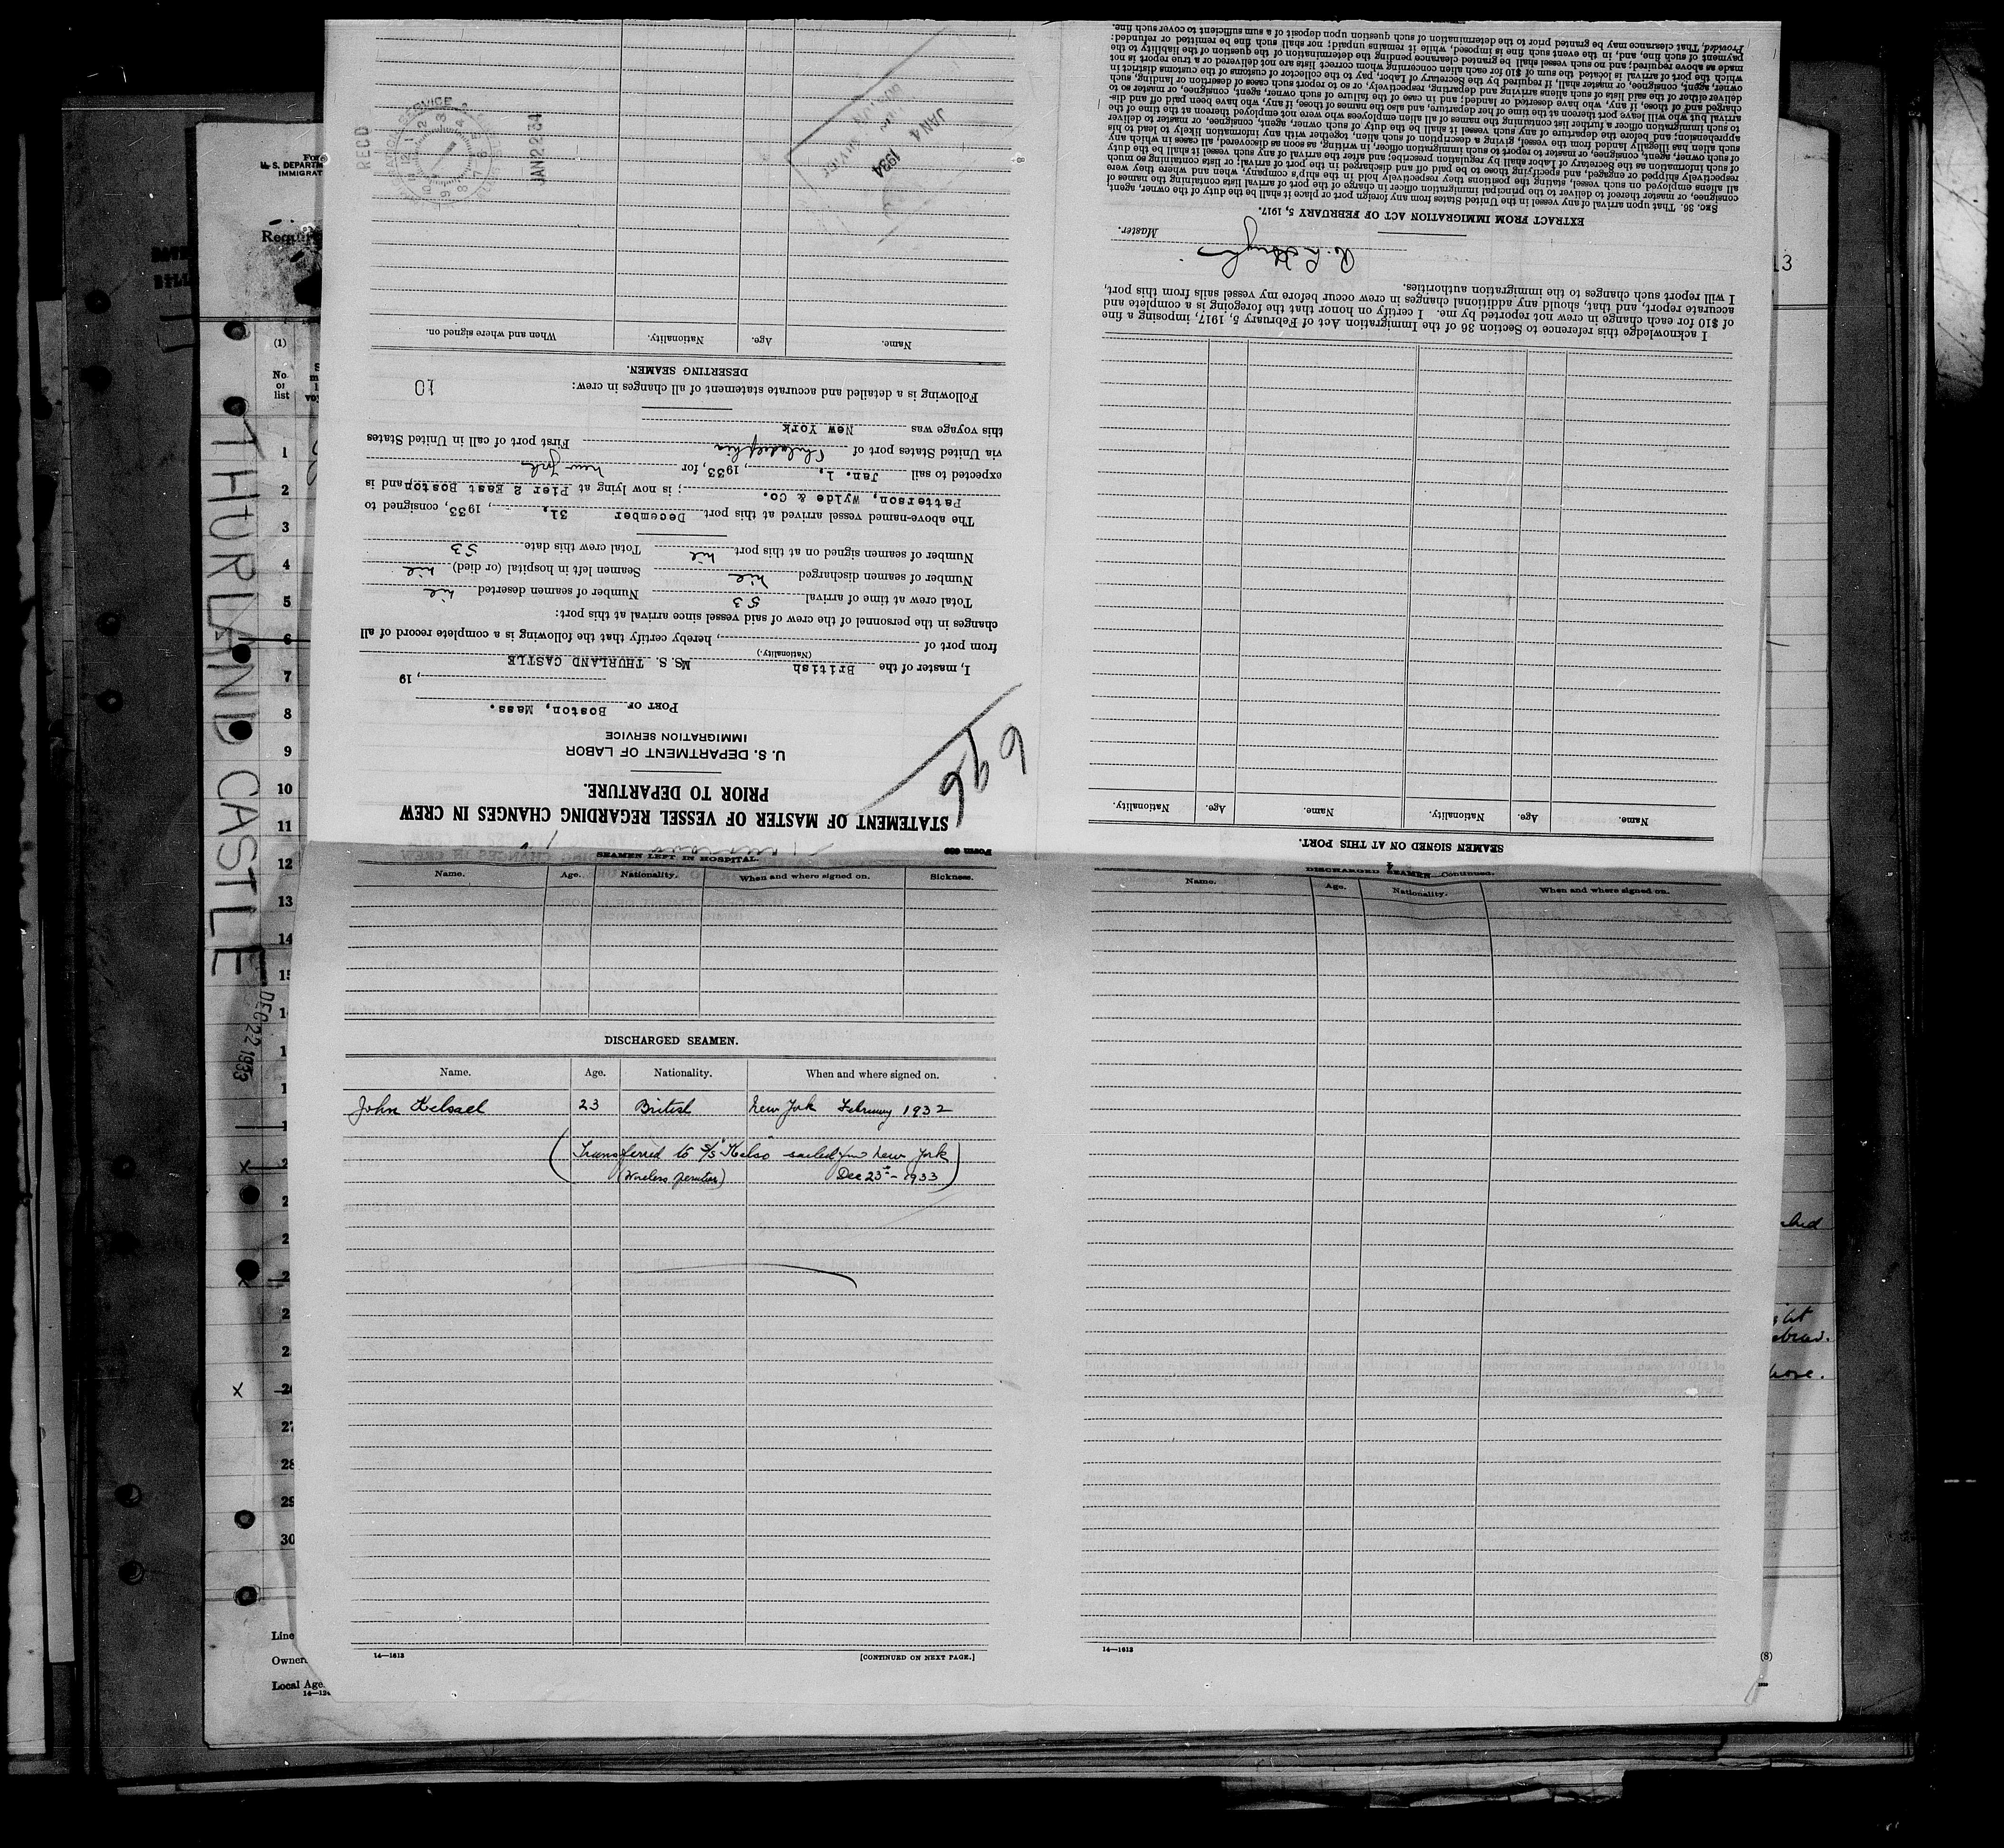 STATEMENT OF MASTER OF VESSEL REGARDING CHANGES IN CREW
PRIOR TO DEPARTURE.
U. S. DEPARTMENT OF LABOR
IMMIGRATION SERVICE
PORT OF Boston, Mass.
, 19
I, master of the British MS. S. THURLAND CASTLE
(Nationality.)
from port of , hereby certify that the following is a complete record of all
changes in the personnel of the crew of said vessel since arrival at this port:
Total crew at time of arrival 53 Number of seamen deserted nil
Number of seamen discharged nil Seamen left in hospital (or died) nil
Number of seamen signed on at this port nil Total crew this date 53
The above-named vessel arrived at this port December 31, , 1933, consigned to
Patterson, Wylde & Co. ; is now lying at Pier 2 East Boston and is
expected to sail Jan. 1, , 1933, for New York
via United States port of Philadelphia First port of call in United States
this voyage was New York
Following is a detailed and accurate statement of all changes in crew: 10
DESERTING SEAMEN.
Name. Age. Nationality. When and where signed on.
REC'D
JAN 2 2 34
JAN 4 1934
SEAMEN SIGNED ON AT THIS PORT.
Name. Age. Nationality. Name. Age. Nationality.
I acknowledge this reference to Section 36 of the Immigration Act of February 5, 1917, imposing a fine
of $10 for each change in crew not reported by me. I certify on honor that the foregoing is a complete and
accurate report, and that, should any additional changes in crew occur before my vessel sails from this port,
I will report such changes to the immigration authorities.
Master.
EXTRACT FROM IMMIGRATION ACT OF FEBRUARY 5, 1917.
SEC. 36. That upon arrival of any vessel in the United States from any foreign port or place it shall be the duty of the owner, agent,
consignee, or master thereof to deliver to the principal immigration officer in charge of the port of arrival lists containing the names of
all aliens employed on such vessel, stating the positions they respectively hold in the ship's company, when and where they were
respectively shipped or engaged, and specifying those to be paid off and discharged in the port of arrival; or lists containing so much
of such information as the Secretary of Labor shall by regulation prescribe; and after the arrival of any such vessel it shall be the duty
of such owner, agent, consignee, or master to report to such immigration officer, in writing, as soon as discovered, all cases in which any
such alien has illegally landed from the vessel, giving a description of such alien, together with any information likely to lead to his
apprehension; and before the departure of any such vessel it shall be the duty of such owner, agent, consignee, or master to deliver
to such immigration officer a further list containing the names of all alien employees who were not employed thereon at the time of the
arrival but who will leave port thereon at the time of her departure, and also the names of those, if any, who have been paid off and dis-
charged and of those, if any, who have deserted or landed; and in case of the failure of such owner, agent, consignee, or master so to
deliver either of the said lists of such aliens arriving and departing, respectively, or so to report such cases of desertion or landing, such
owner, agent, consignee, or master shall, if required by the Secretary of Labor, pay to the collector of customs of the customs district in
which the port of arrival is located the sum of $10 for each alien concerning whom correct lists are not delivered or a true report is not
made as above required; and no such vessel shall be granted clearance pending the determination of the question of the liability to the
payment of such fine, and, in the event such fine is imposed, while it remains unpaid; nor shall such fine be remitted or refunded:
Provided, That clearance may be granted prior to the determination of such question upon deposit of a sum sufficient to cover such fine.
SEAMEN LEFT IN HOSPITAL.
Name. Age. Nationality. When and where signed on. Sickness.
DISCHARGED SEAMEN.
Name. Age. Nationality. When and where signed on.
John Kelsael 23 British New York February 1932
(Transferred to S/S "Kelso" sailed from New York
(Wireless operator) Dec 23rd - 1933)
14—1613
[CONTINUED ON NEXT PAGE.]
4
DISCHARGED SEAMEN—Continued.
Name. Age. Nationality. When and where signed on.
14—1613
THURLAND CASTLE
DEC 22 1933
(1)
No
of
list
1
2
3
4
5
6
7
8
9
10
11
12
13
14
27
28
29
30
Line
Owner
Local Age
13
(8)